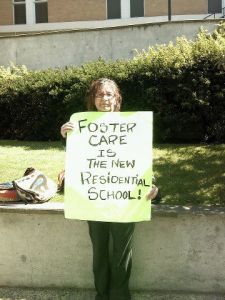 FOSTER
CARE
IS
THE NEW
RESIDENTIAL
SCHOOL!